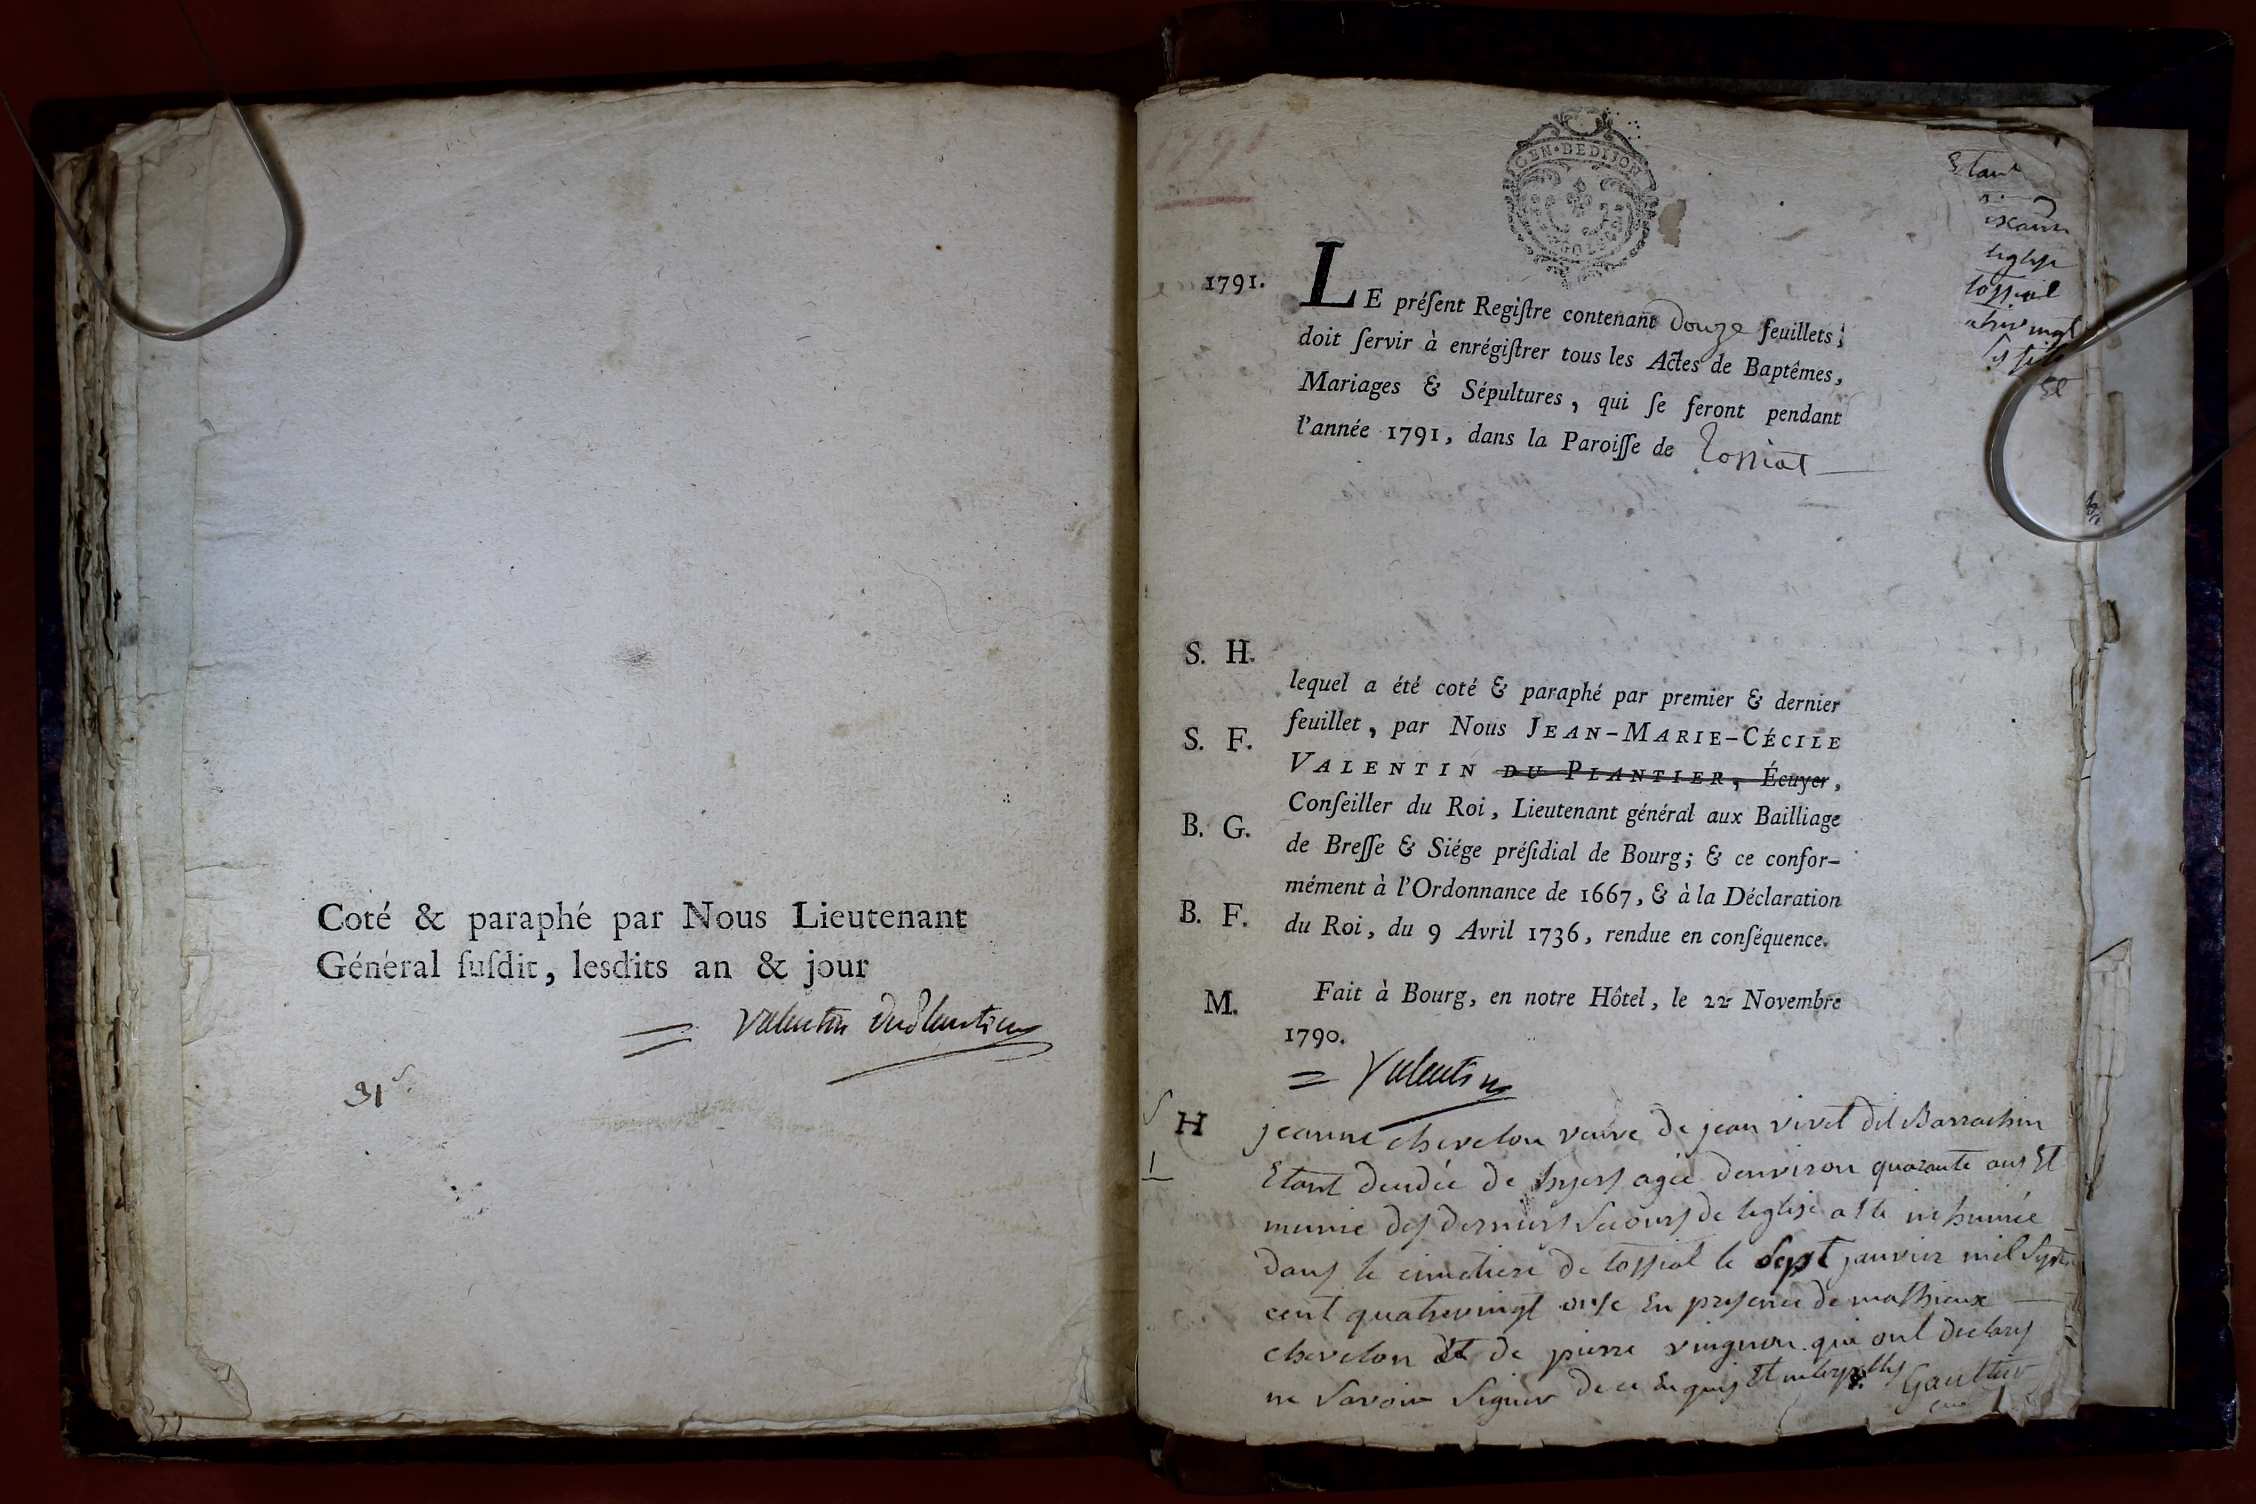 Coté & paraphé par Nous Lieutenant
Général ſuſdit, lesdits an & jour
Valentin Duplantier
31ˢ
GEN·BEDIJON
1791.
LE préſent Regiſtre contenant Douze feuillets,
doit ſervir à enrégiſtrer tous les Actes de Baptêmes,
Mariages & Sépultures, qui ſe feront pendant
l'année 1791, dans la Paroiſſe de Tossiat
S. H.
lequel a été coté & paraphé par premier & dernier
feuillet, par Nous JEAN-MARIE-CÉCILE
S. F.
VALENTIN DU PLANTIER, Écuyer,
Conſeiller du Roi, Lieutenant général aux Bailliage
B. G.
de Breſſe & Siége préſidial de Bourg; & ce confor-
mément à l'Ordonnance de 1667, & à la Déclaration
B. F.
du Roi, du 9 Avril 1736, rendue en conſéquence.
M.
Fait à Bourg, en notre Hôtel, le 22 Novembre
1790.
Valentin
S H
1
jeanne chevelon veuve de jean vivet dit Barrachin
Etant deudée de hyers agée denviron quarante ans Et
munie des derniers secours de leglise a ete inhumée
dans le cimetiere de tossiat le sept janvier mil sept
cent quatrevingt onse En presence de mathieux
chevelon Et de pierre vuignon qui ont declarés
ne savoir signer de ce Enquis Et interpellés Gauttier
curé
Etant
leglise
tossiat
Et